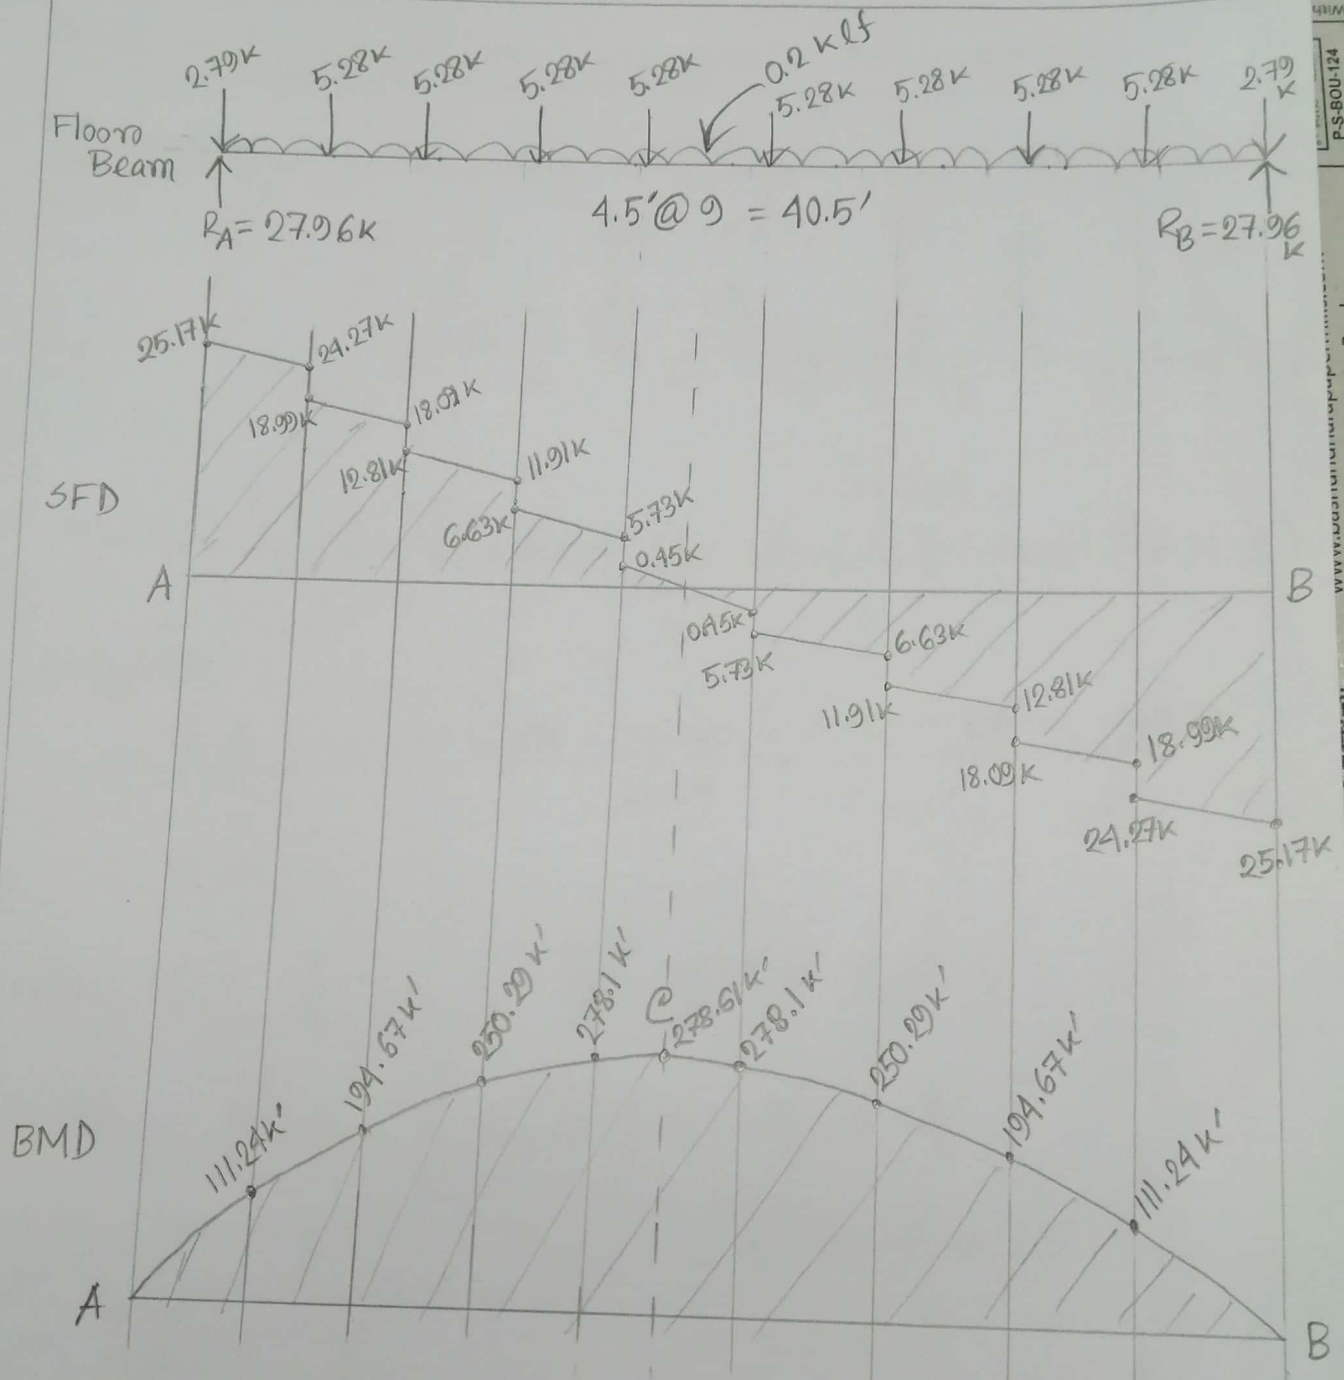 2.79K 5.28K 5.28K 5.28K 5.28K 0.2 Klf 5.28K 5.28K 5.28K 5.28K 2.79 K
Floor
Beam
R_A = 27.96K 4.5'@ 9 = 40.5' R_B = 27.96 K
SFD
25.17K 24.27K
18.99K 18.09K
12.81K 11.91K
6.63K 5.73K
0.45K
A B
0.45K
5.73K 6.63K
11.91K 12.81K
18.09K 18.99K
24.27K 25.17K
BMD
111.24K' 194.67K' 250.29K' 278.1K' C 278.61K' 278.1K' 250.29K' 194.67K' 111.24K'
A B
P-S-BOU-124